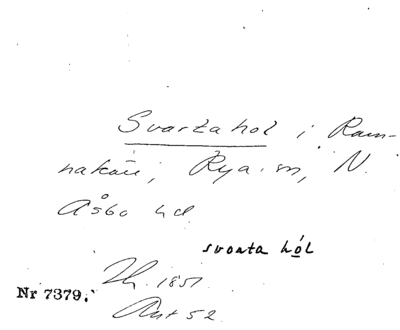 Svartahol i Ram-
nakärr, Rya sn, N.
Åsbo hd
svarta hól
Th. 1851
Nr 7379.
Ant 52